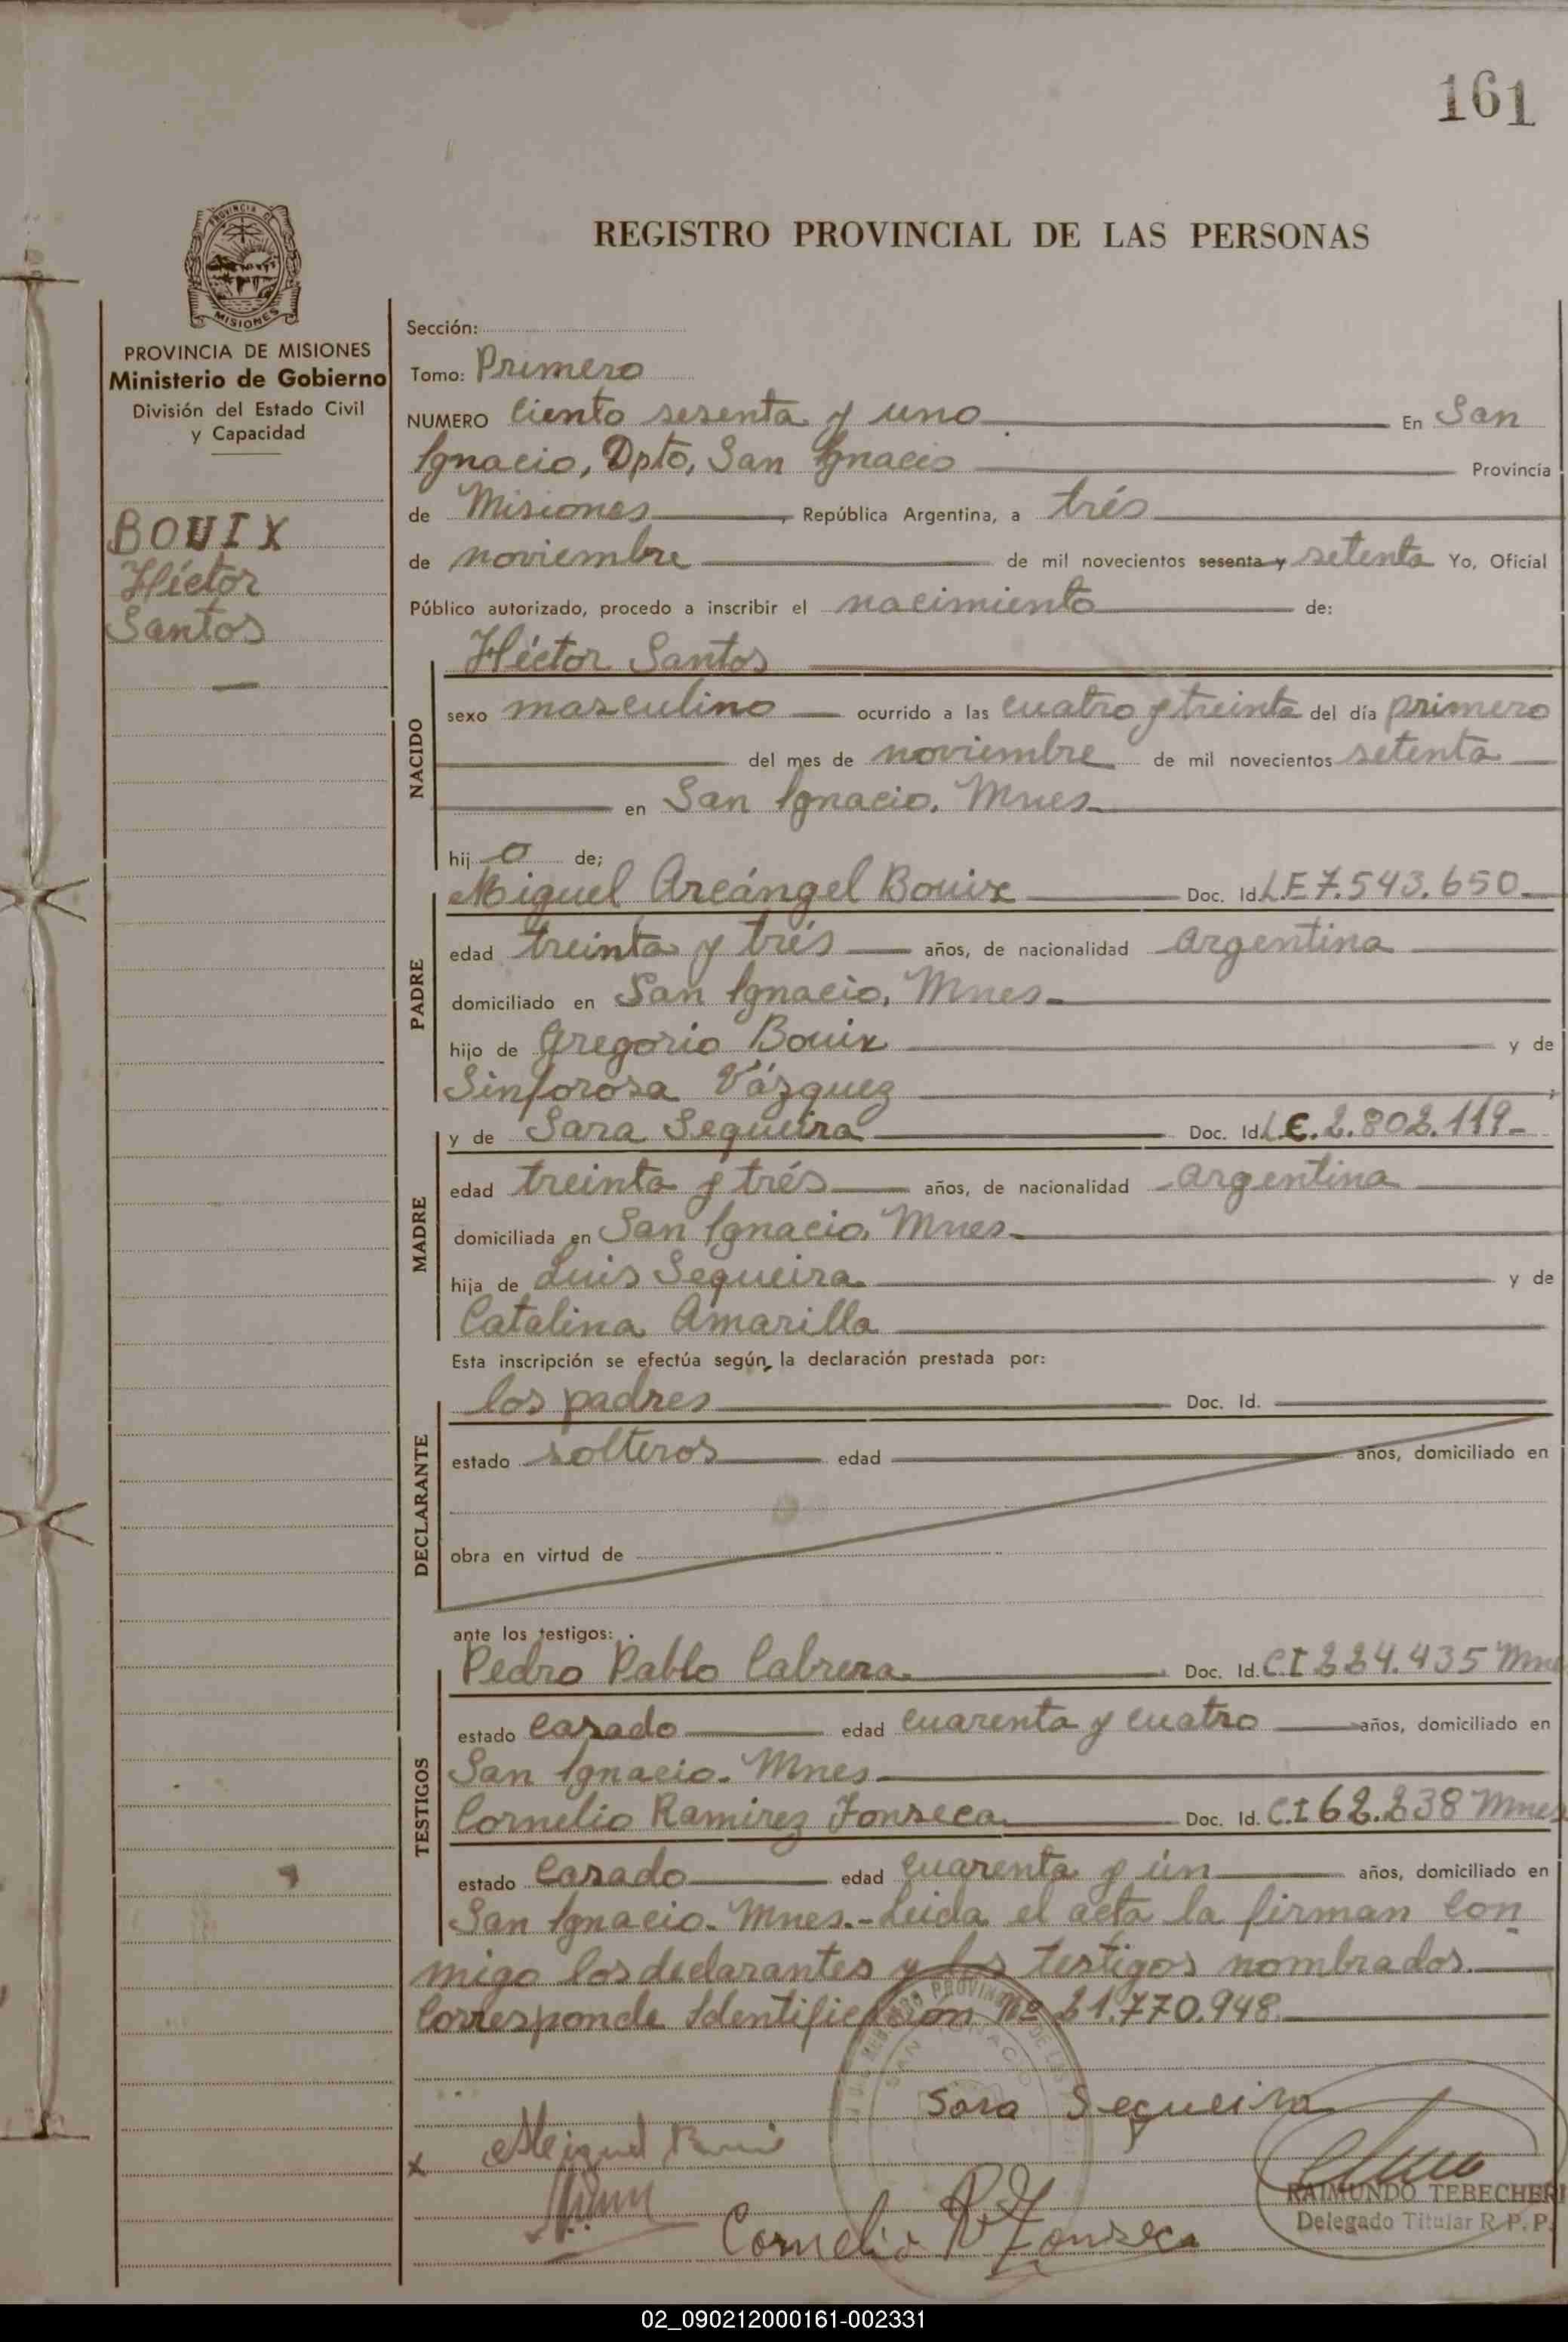 161
REGISTRO PROVINCIAL DE LAS PERSONAS
PROVINCIA DE
MISIONES
PROVINCIA DE MISIONES
Ministerio de Gobierno
División del Estado Civil
y Capacidad
BOUIX
Héctor
Santos
Sección:
Tomo: Primero
NUMERO Ciento sesenta y uno En San
Ignacio, Dpto, San Ignacio Provincia
de Misiones, República Argentina, a trés
de noviembre de mil novecientos sesenta y setenta Yo, Oficial
Público autorizado, procedo a inscribir el nacimiento de:
Héctor Santos
NACIDO
sexo masculino ocurrido a las cuatro y treinta del día primero
del mes de noviembre de mil novecientos setenta
en San Ignacio. Mnes
hij o de;
PADRE
Miguel Arcángel Bouix Doc. Id. L.E 7.543.650
edad treinta y trés años, de nacionalidad argentina
domiciliado en San Ignacio, Mnes
hijo de Gregorio Bouix y de
Sinforosa Vázquez ;
MADRE
y de Sara Sequeira Doc. Id. L.C. 2.802.119
edad treinta y trés años, de nacionalidad argentina
domiciliada en San Ignacio, Mnes
hija de Luis Sequeira y de
Catalina Amarilla
Esta inscripción se efectúa según, la declaración prestada por:
DECLARANTE
los padres Doc. Id.
estado solteros edad años, domiciliado en
obra en virtud de
ante los testigos:
TESTIGOS
Pedro Pablo Cabrera Doc. Id. C.I 224.435 Mnes
estado Casado edad cuarenta y cuatro años, domiciliado en
San Ignacio. Mnes
Cornelio Ramirez Fonseca Doc. Id. C.I 62.238 Mnes
estado Casado edad cuarenta y ún años, domiciliado en
San Ignacio. Mnes.- Leida el acta la firman con
migo los declarantes y los testigos nombrados.
Corresponde Identificacion Nº 21.770.948.
Sara Sequeira
x Miguel
Cornelio R. Fonseca
RAIMUNDO TEBECHERI
Delegado Titular R. P. P.
02_090212000161-002331